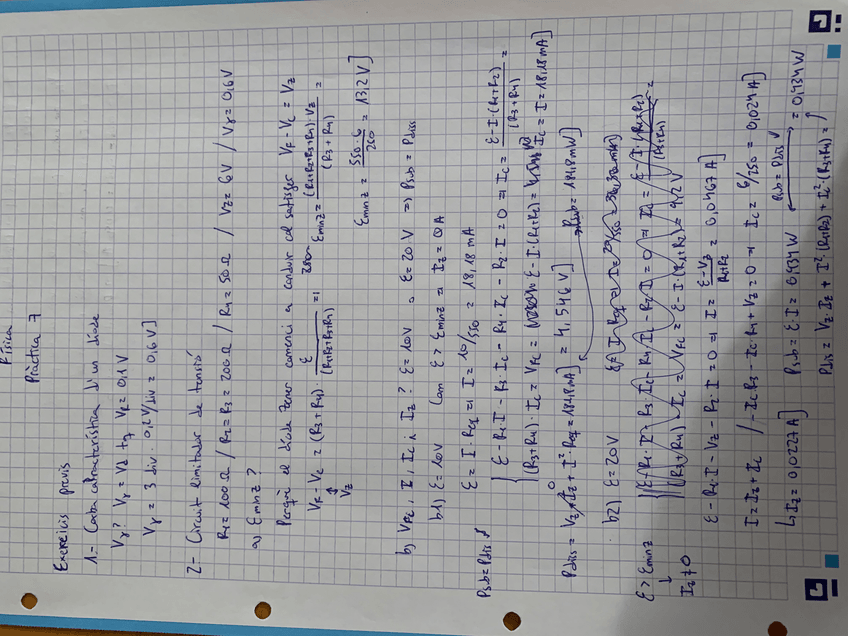 Física
Pràctica 7
Exercicis previs
1- Corba característica d'un díode
Vγ? Vγ = Vd tq VR = 0,1 V
Vγ = 3 div · 0,2 V/div = 0,6 V]
2- Circuit limitador de tensió
R1 = 100 Ω / R2 = R3 = 200 Ω / R4 = 50 Ω / VZ = 6V / Vγ = 0,6 V
a) Emin z?
Perquè el díode Zener comenci a conduir cal satisfer VF - VC = VZ
VF - VC = (R3 + R4) · E/(R1+R2+R3+R4) => Emin z = (R1+R2+R3+R4)·VZ / (R3+R4) =
VZ
Emin z = 550·6/250 = 13,2 V]
b) VFC, I, IC i IZ? E = 10V o E = 20 V => Psub = Pdiss
b1) E = 10V Com E > Emin z => IZ = 0A
E = I · Req => I = 10/550 = 18,18 mA
E - R1 I - R3 IC - R4 · IC - R2 · I = 0 => IC = E - I·(R1+R2) / (R3+R4) =
(R3+R4) · IC = VFC = E - I·(R1+R2) = 4,545 V
IC = I = 18,18 mA]
Psub = Pdiss
Pdiss = VZ · IZ + I² · Req = 181,8 mW] = 4,546 V]
Psub = 181,8 mW]
b2) E = 20V
E > Emin z
IZ ≠ 0
E - R1 · I - VZ - R2 · I = 0 => I = E - VZ / R1+R2 = 0,0467 A]
I = IZ + IC / -IC R3 - IC R4 + VZ = 0 => IC = 6/250 = 0,024 A]
IZ = 0,0227 A] Psub = E·I = 0,934 W Psub = Pdiss = 0,934 W
Pdiss = VZ · IZ + I² · (R1+R2) + IC² · (R3+R4) =